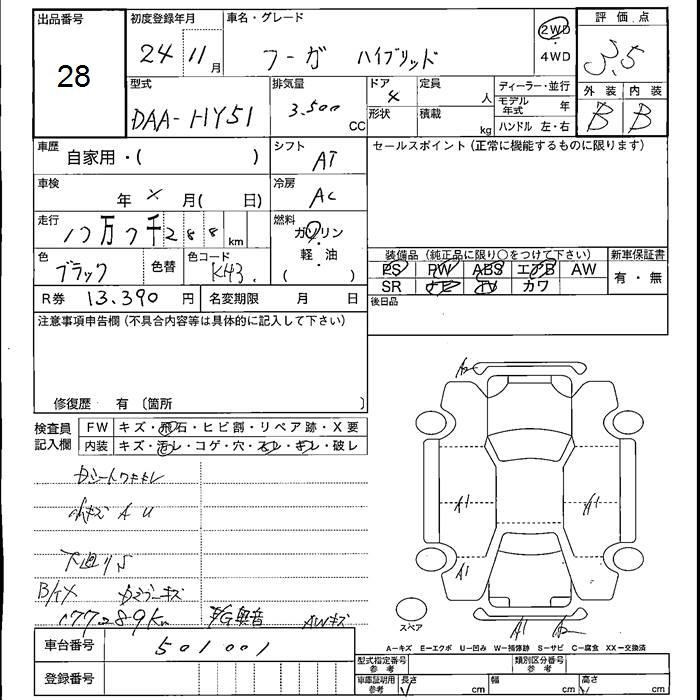 出品番号 初度登録年月 車名・グレード 評価点
28 24 11月 フーガ ハイブリッド 2WD 4WD 3.5
型式 排気量 ドア 定員 ディーラー・並行 外装 内装
DAA-HY51 3.500 CC 4 人 モデル年式 年 B B
形状 積載 kg ハンドル 左・右
車歴 自家用・( ) シフト AT セールスポイント(正常に機能するものに限ります)
車検 年 X 月( 日) 冷房 AC
走行 17万7千288 km 燃料 ガソリン・軽油・( )
色 ブラック 色替 色コード K43. 装備品(純正品に限り○をつけて下さい) 新車保証書
PS PW ABS エアB AW 有・無
SR ナビ TV カワ
R券 13.390 円 名変期限 月 日 後日品
注意事項申告欄(不具合内容等は具体的に記入して下さい)
修復歴 有 〔箇所 〕
検査員記入欄 FW キズ・飛石・ヒビ割・リペア跡・X要
内装 キズ・汚レ・コゲ・穴・スレ・キレ・破レ
小キズ A U
下廻りS
177289Km 異音 AWキズ
A2
A1 A1
A1
A1 A2
スペア
A-キズ E-エクボ U-凹み W-補修跡 S-サビ C-腐食 XX-交換済
車台番号 501001
型式指定番号 参考 類別区分番号 参考
登録番号
車庫証明用 参考 長さ cm 幅 cm 高さ cm